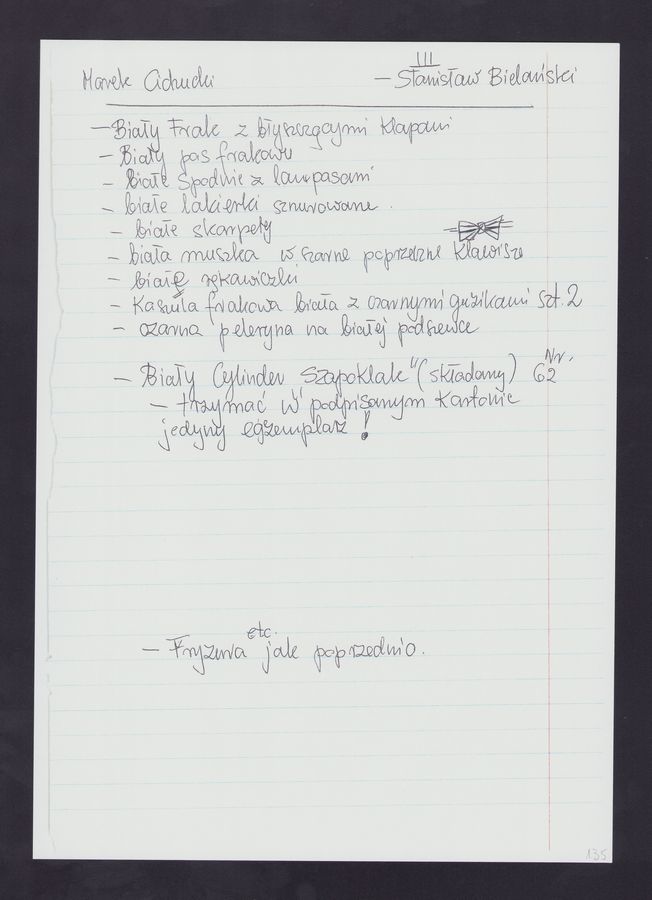 III
Marek Cichucki – Stanisław Bielański
– Biały Frak z błyszczącymi klapami
– Biały pas frakowy
– białe Spodnie z lampasami
– białe lakierki sznurowane.
– białe skarpety
– biała muszka w czarne poprzeczne klawisze
– białe rękawiczki
– Kaszula frakowa biała z czarnymi guzikami szt. 2
– czarna peleryna na białej podszewce
– Biały Cylinder "Szapoklak" (składany) Nr. 62
– trzymać w podpisanym kartonie
jedyny egzemplarz !
– Fryzura etc. jak poprzednio.
135